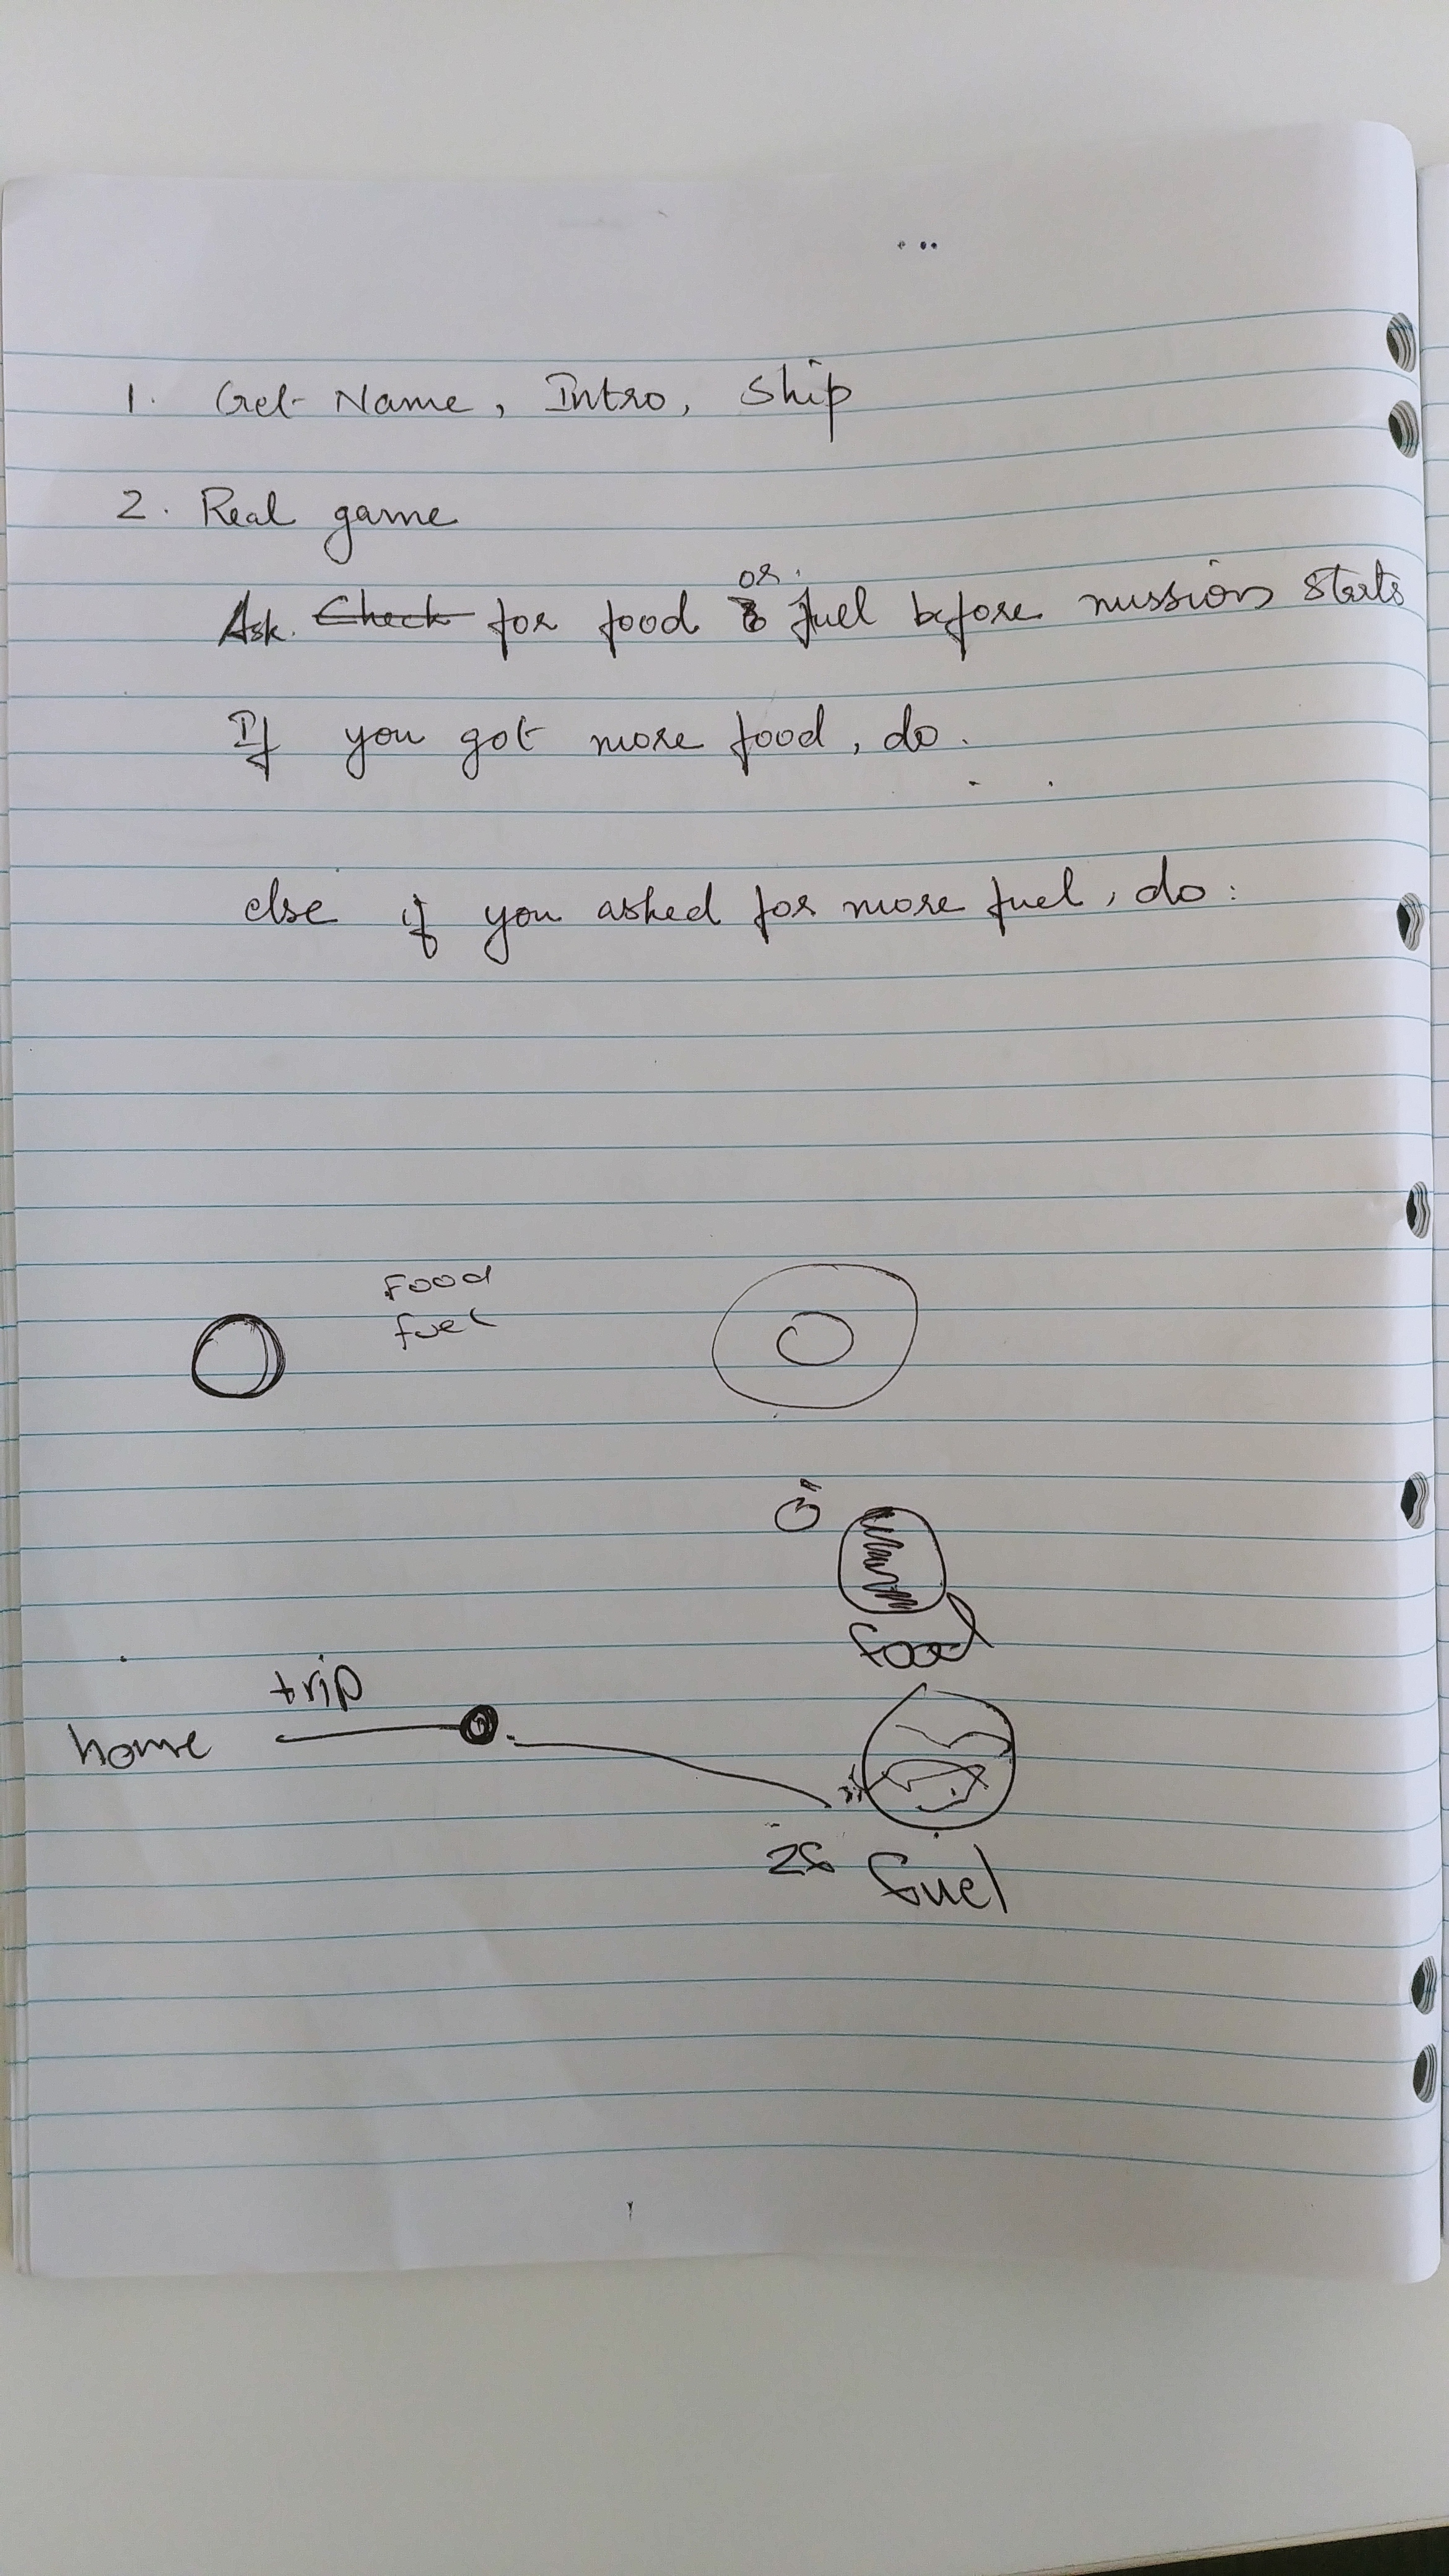 1. Get Name, Intro, Ship
2. Real game
or
Ask. Check for food & fuel before mission starts
If you got more food, do.
else if you asked for more fuel, do:
food
fuel
food
trip
home
fuel